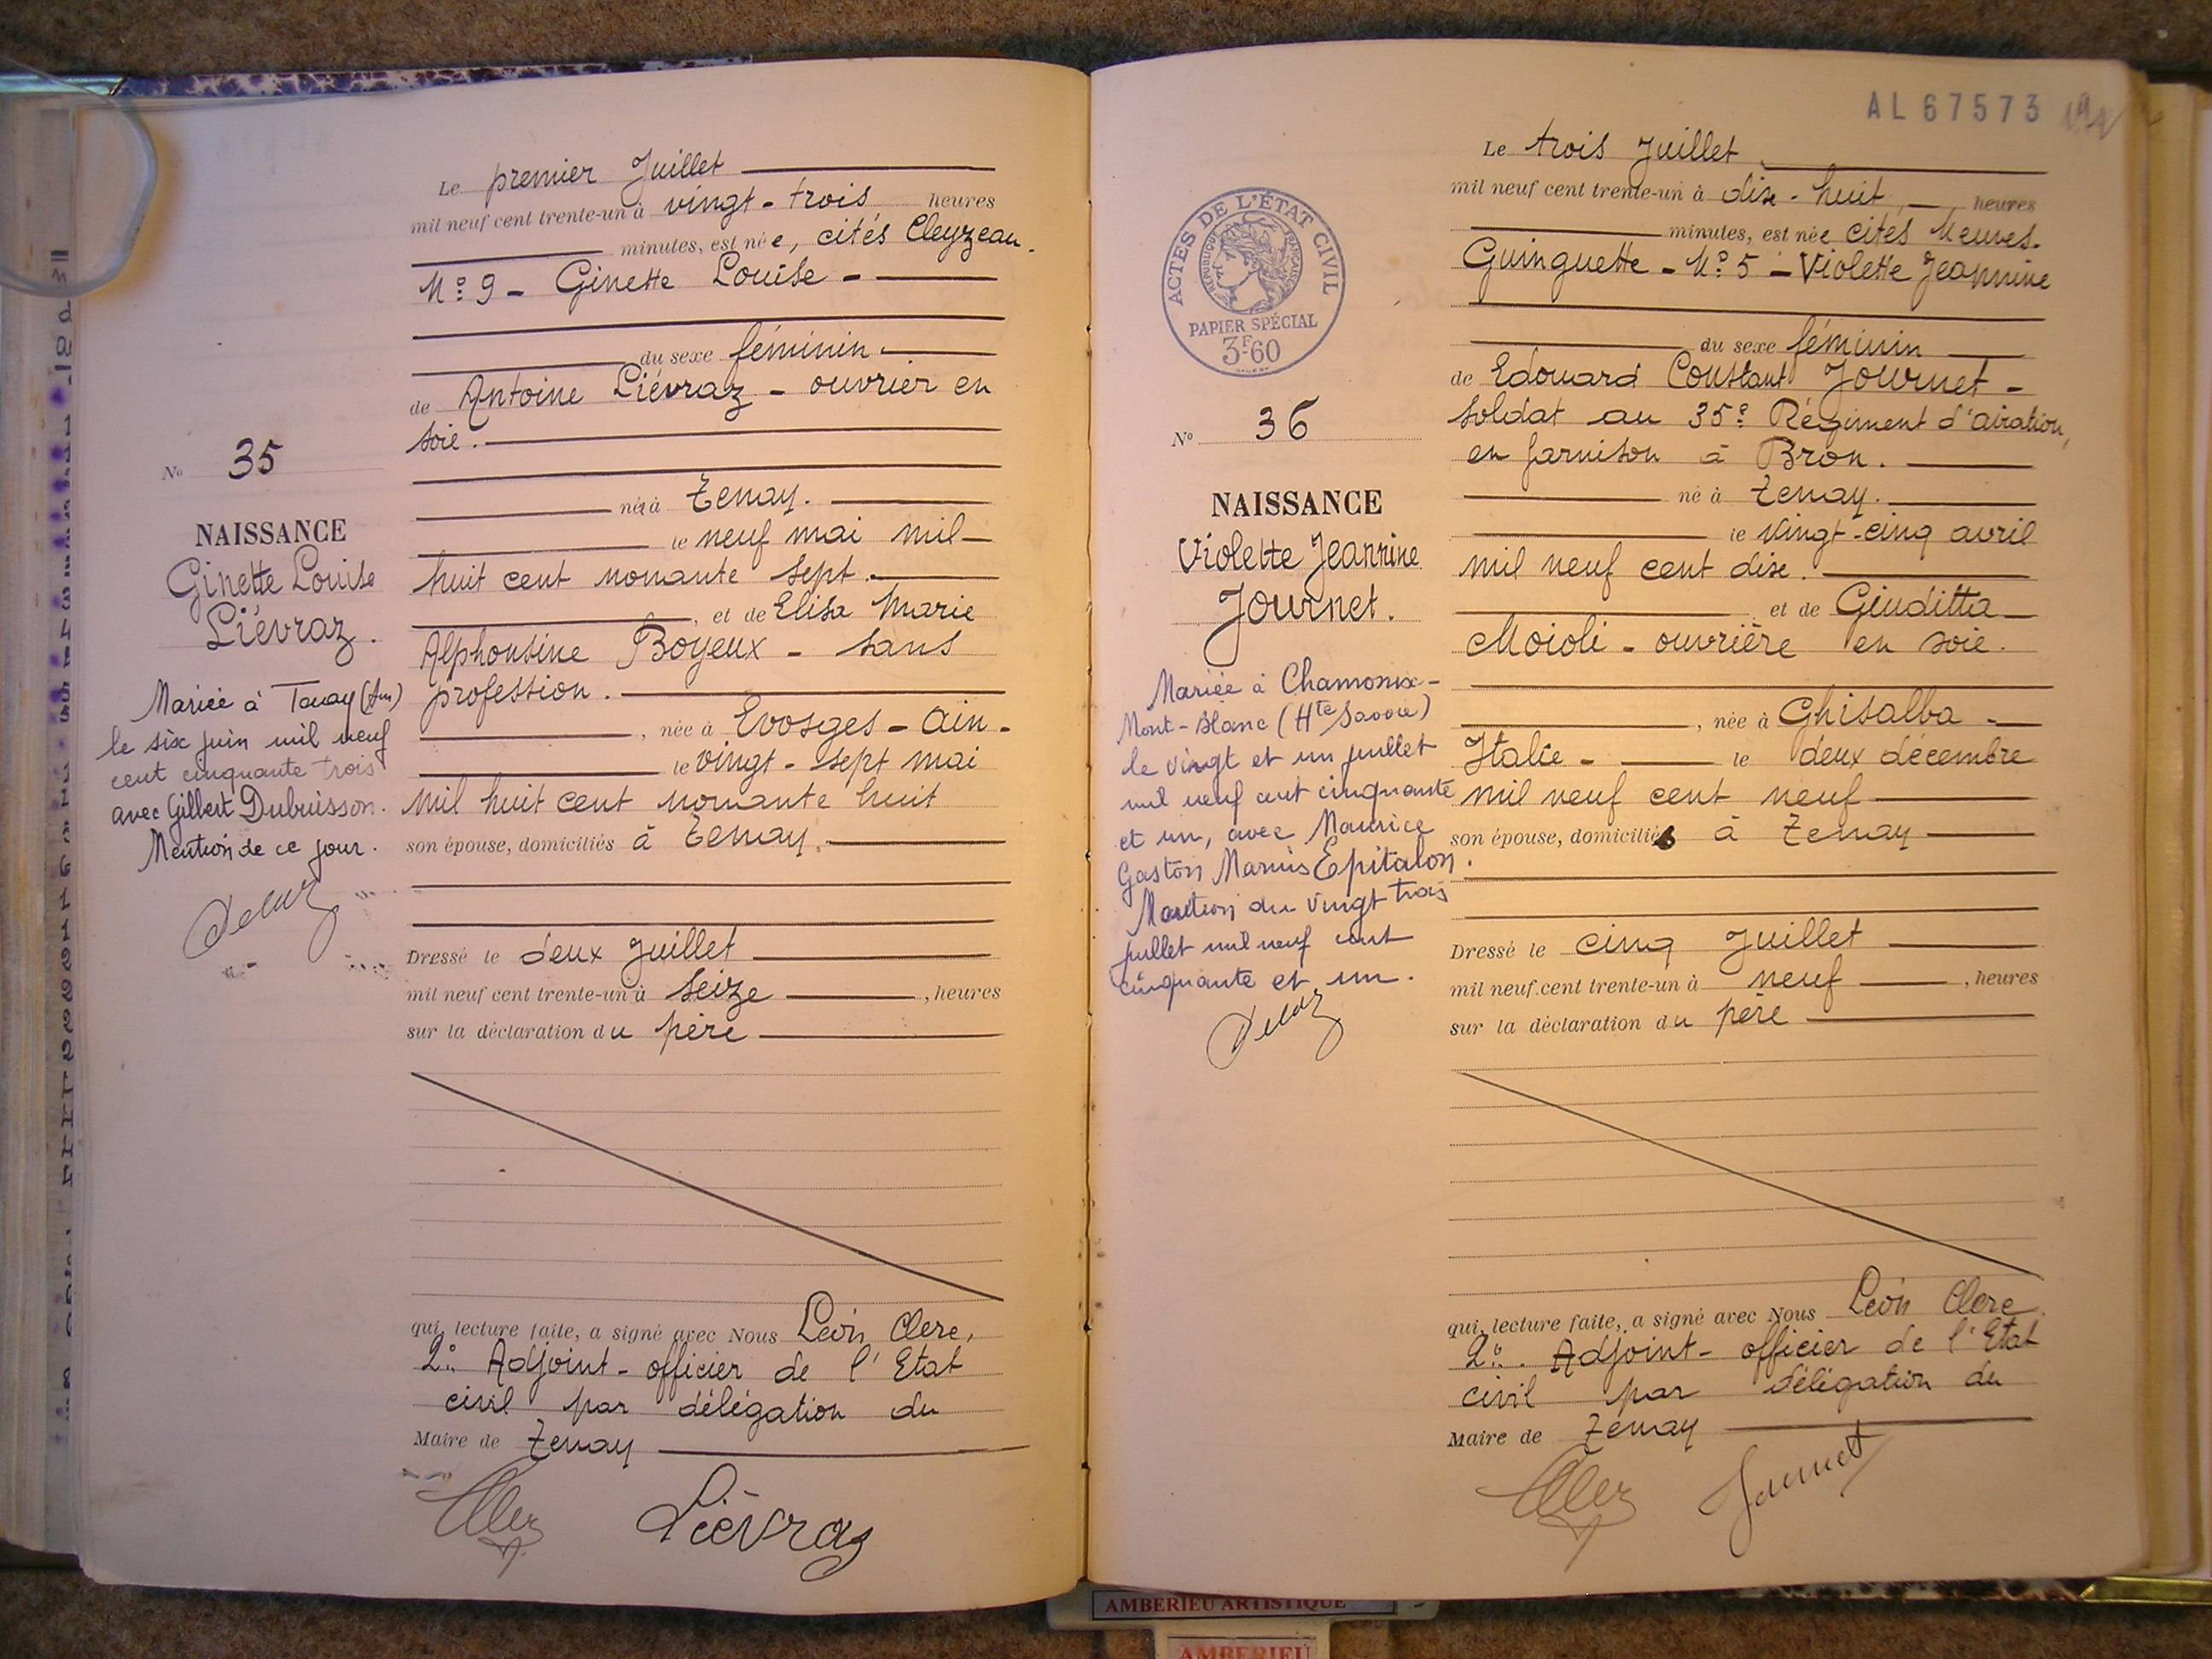 Le premier Juillet
mil neuf cent trente-un à vingt-trois heures
minutes, est née, cités Cleyzeau.
N° 9 - Ginette Louise -
du sexe féminin.
de Antoine Liévraz - ouvrier en
soie.
né à Tenay.
le neuf mai mil
huit cent nonante sept.
, et de Elisa Marie
Alphonsine Boyeux - sans
profession.
, née à Evosges - Ain -
le vingt-sept mai
mil huit cent nonante huit
son épouse, domiciliés à Tenay.
Dressé le deux Juillet
mil neuf cent trente-un à seize , heures
sur la déclaration du père
qui, lecture faite, a signé avec Nous Léon Clerc,
2e Adjoint - officier de l'Etat
civil par délégation du
Maire de Tenay
Liévraz
N° 35
NAISSANCE
Ginette Louise
Liévraz.
Mariée à Tenay (Ain)
le six juin mil neuf
cent cinquante trois
avec Gilbert Dubuisson.
Mention de ce jour.
AL 67573
ACTES DE L'ÉTAT CIVIL
RÉPUBLIQUE FRANÇAISE
PAPIER SPÉCIAL
3F60
N° 36
NAISSANCE
Violette Jeannine
Journet.
Mariée à Chamonix-
Mont-Blanc (Hte Savoie)
le vingt et un juillet
mil neuf cent cinquante
et un, avec Maurice
Gaston Marius Epitalon.
Mention du vingt trois
juillet mil neuf cent
cinquante et un.
Le trois Juillet
mil neuf cent trente-un à dix-huit heures
minutes, est née cités Neuves.
Guinguette - N° 5 - Violette Jeannine
du sexe féminin
de Edouard Constant Journet -
soldat au 35e Régiment d'aviation,
en garnison à Bron.
né à Tenay.
le vingt-cinq avril
mil neuf cent dix.
et de Giuditta
Moioli - ouvrière en soie.
, née à Ghisalba -
Italie - le deux décembre
mil neuf cent neuf
son épouse, domiciliés à Tenay
Dressé le cinq Juillet
mil neuf cent trente-un à neuf , heures
sur la déclaration du père
qui, lecture faite, a signé avec Nous Léon Clerc
2e. Adjoint - officier de l'Etat
civil par délégation du
Maire de Tenay
Journet
AMBERIEU ARTISTIQUE
AMBERIEU